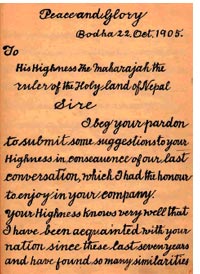 Peace and Glory
Bodha 22. Oct. 1905.
To
His Highness The Maharajah the
ruler of the Holy land of Nepal
Sire
I beg your pardon
to submit some suggestions to your
Highness in consequence of our last
conversation, which I had the honour
to enjoy in your company.
Your Highness knows very well that
I have been acquainted with your
nation since these last seven years
and have found so many similarities